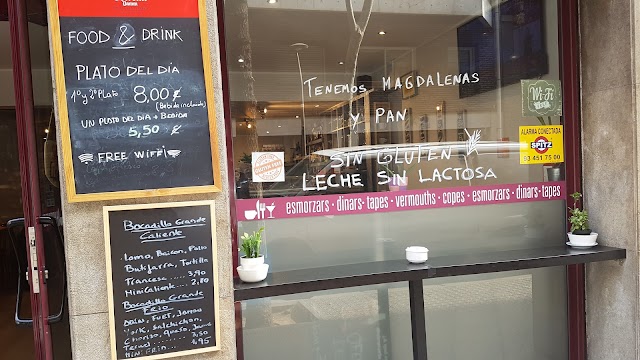 FOOD & DRINK
PLATO DEL DÍA
1º y 2º Plato 8,00 €
(Bebida incluida)
UN PLATO DEL DIA + BEBIDA
5,50 €
FREE WIFFI
Bocadillo Grande
Caliente
Lomo, Baicon, Pollo
Butifarra, Tortilla
Francesa ..... 3,90
Mini Caliente ... 2,80
Bocadillo Grande
FRIO
York, Salchichon,
Chorizo, Queso, Jamon
Teruel ....... 3,50
MINI FRIO
TENEMOS MAGDALENAS
Y PAN
SIN GLUTEN
LECHE SIN LACTOSA
esmorzars · dinars · tapes · vermouths · copes · esmorzars · dinars · tapes
Wi-Fi
ALARMA CONECTADA
SPITZ
93 451 75 00